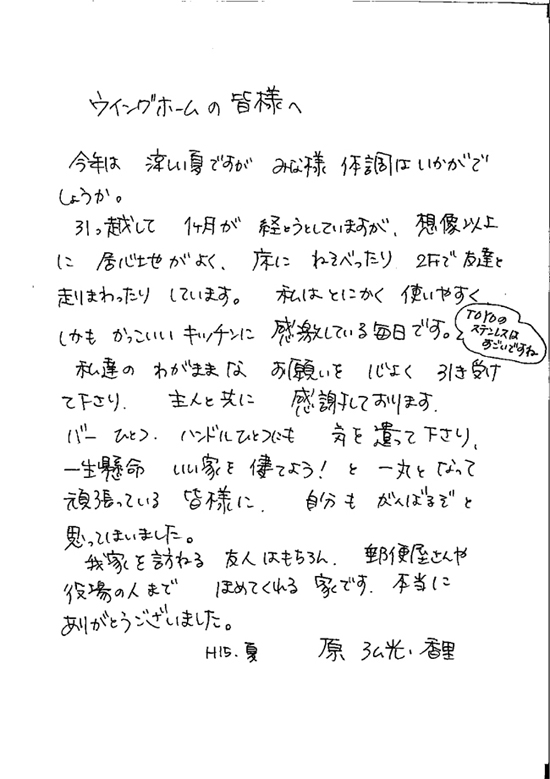 ウイングホームの皆様へ
今年は 涼しい夏ですが みな様 体調はいかがで
しょうか。
引っ越して 1ヶ月が 経とうとしていますが、想像以上
に 居心地がよく、床に ねそべったり 2Fで友達と
走りまわったり しています。 私はとにかく 使いやすく
しかも かっこいい キッチンに 感激している毎日です。
TOYOの
ステンレスは
すごいですね
私達の わがままな お願いを 心よく 引き受け
て下さり、 主人と共に 感謝しております。
バー ひとつ、ハンドルひとつにも 気を遣って下さり、
一生懸命 いい家を 建てよう! と 一丸となって
頑張っている 皆様に、 自分も がんばるぞと
思ってしまいました。
我家を訪ねる 友人はもちろん、 郵便屋さんや
役場の人まで ほめてくれる 家です。本当に
ありがとうございました。
H15.夏 原 弘光・香里